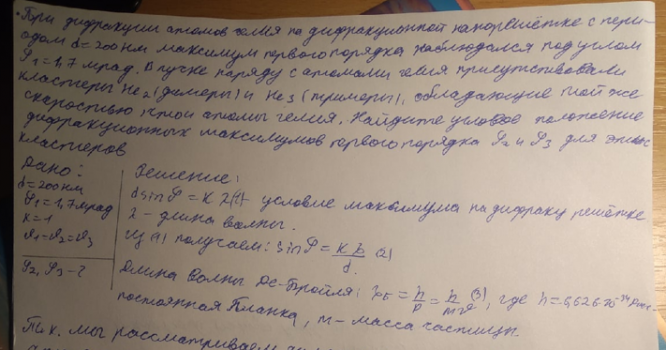 При дифракции атомов гелия на дифракционной нанорешётке с пери-
одом d=200нм максимум первого порядка наблюдался под углом
φ₁=1,7мрад. В пучке наряду с атомами гелия присутствовали
кластеры He₂ (димеры) и He₃ (тримеры), обладающие той же
скоростью, что и атомы гелия. Найдите угловое положение
дифракционных максимумов первого порядка φ₂ и φ₃ для этих
кластеров
Дано:
d=200нм
φ₁=1,7мрад
k=1
φ₂, φ₃-?
Решение:
d sin φ = k λ (1) - условие максимума на дифракц решётке
λ - длина волны.
Из (1) получаем: sin φ = (2)
Длина волны Де-Бройля: = h/p = (3), где h=6,626·10⁻³⁴
постоянная Планка, m - масса частицы.
Т.к. мы рассматриваем